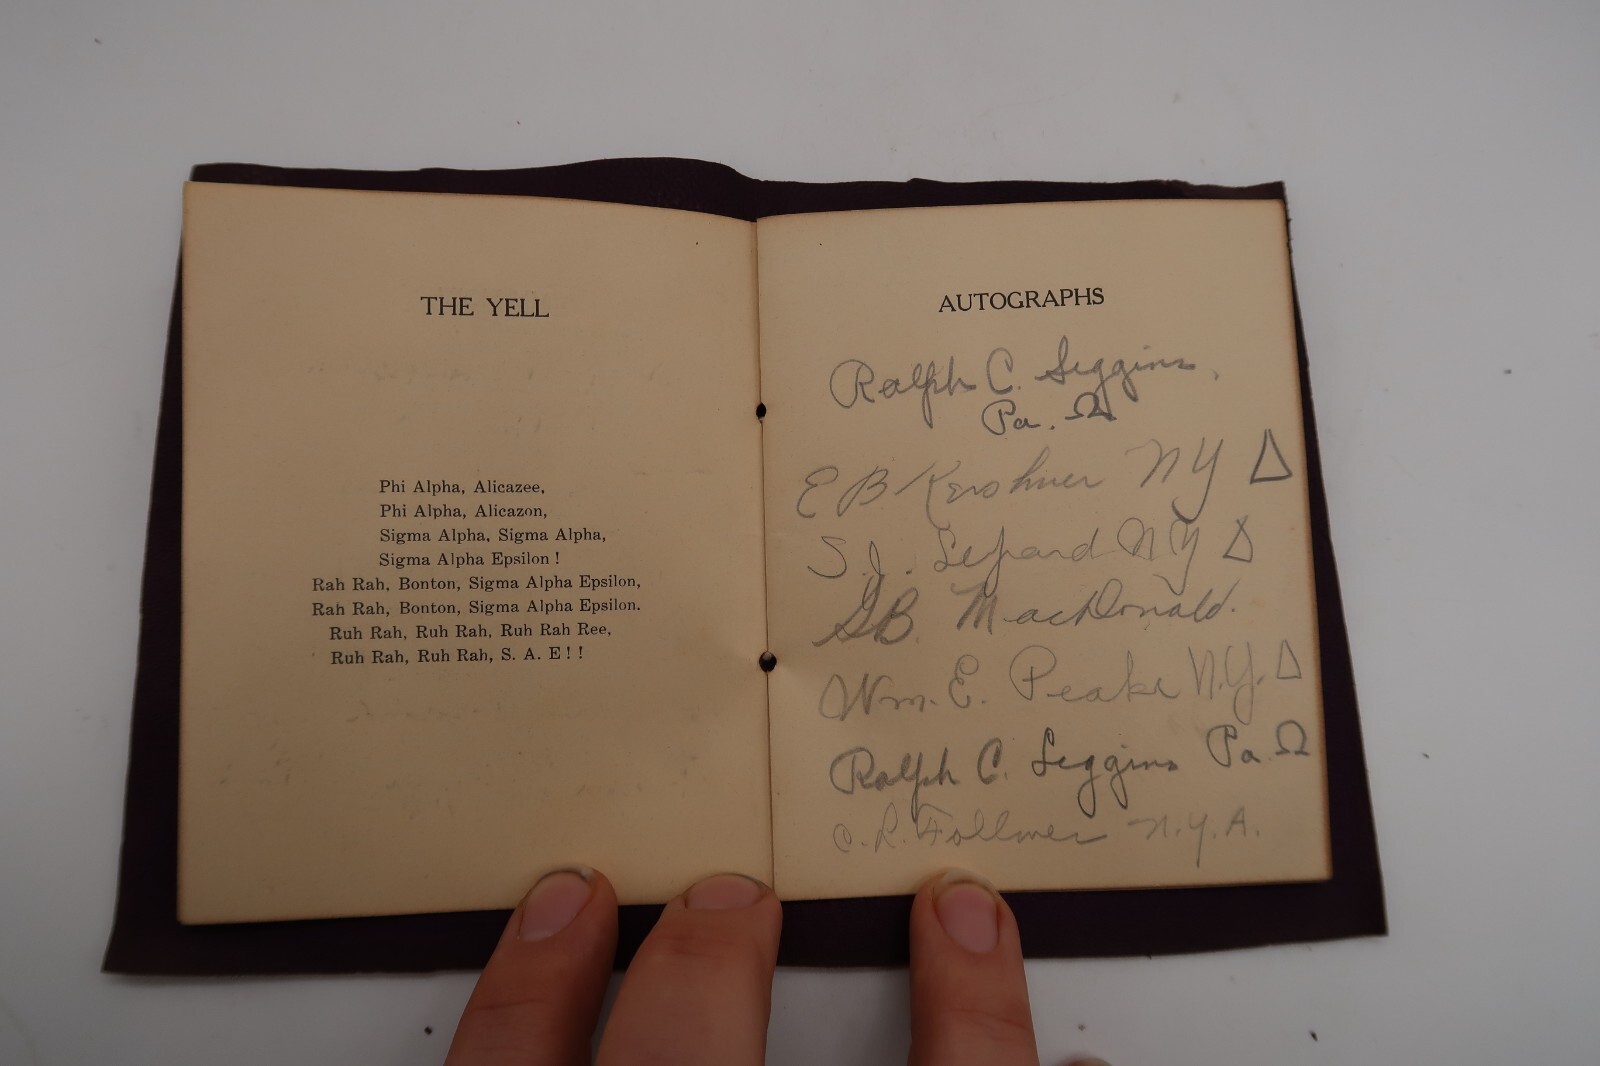 THE YELL
Phi Alpha, Alicazee,
Phi Alpha, Alicazon,
Sigma Alpha, Sigma Alpha,
Sigma Alpha Epsilon !
Rah Rah, Bonton, Sigma Alpha Epsilon,
Rah Rah, Bonton, Sigma Alpha Epsilon.
Ruh Rah, Ruh Rah, Ruh Rah Ree,
Ruh Rah, Ruh Rah, S. A. E ! !
AUTOGRAPHS
Ralph C. Siggins,
Pa. Ω
E B Kershner N Y Δ
S. J. Lepard N Y Δ
G B. MacDonald.
Wm. E. Peake N.Y. Δ
Ralph C. Siggins Pa Ω
C. R. Follmer N.Y.A.